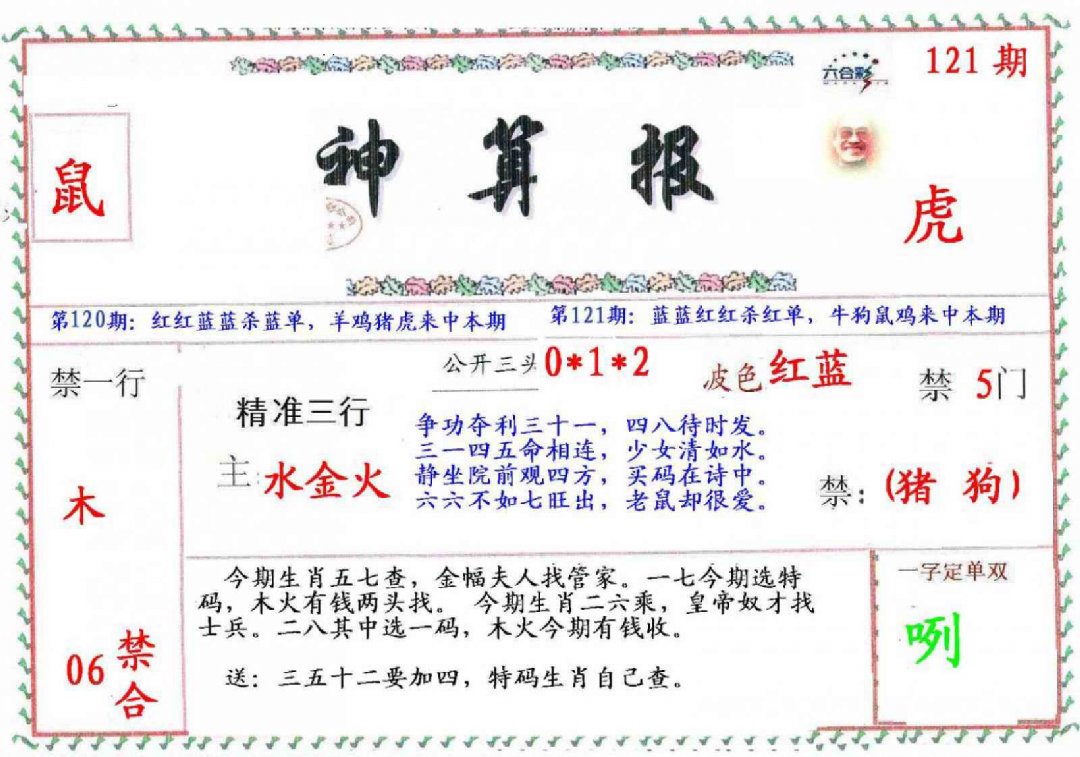 六合彩
121 期
鼠
神 算 报
虎
第120期：红红蓝蓝杀蓝单，羊鸡猪虎来中本期
第121期：蓝蓝红红杀红单，牛狗鼠鸡来中本期
禁一行
公开三头 0*1*2
波色 红蓝
禁 5门
精准三行
主: 水金火
争功夺利三十一，四八待时发。
三一四五命相连，少女清如水。
静坐院前观四方，买码在诗中。
六六不如七旺出，老鼠却很爱。
禁：(猪 狗)
木
今期生肖五七查，金幅夫人找管家。一七今期选特
码，木火有钱两头找。 今期生肖二六乘，皇帝奴才找
士兵。二八其中选一码，木火今期有钱收。
送：三五十二要加四，特码生肖自己查。
一字定单双
咧
06 禁
合